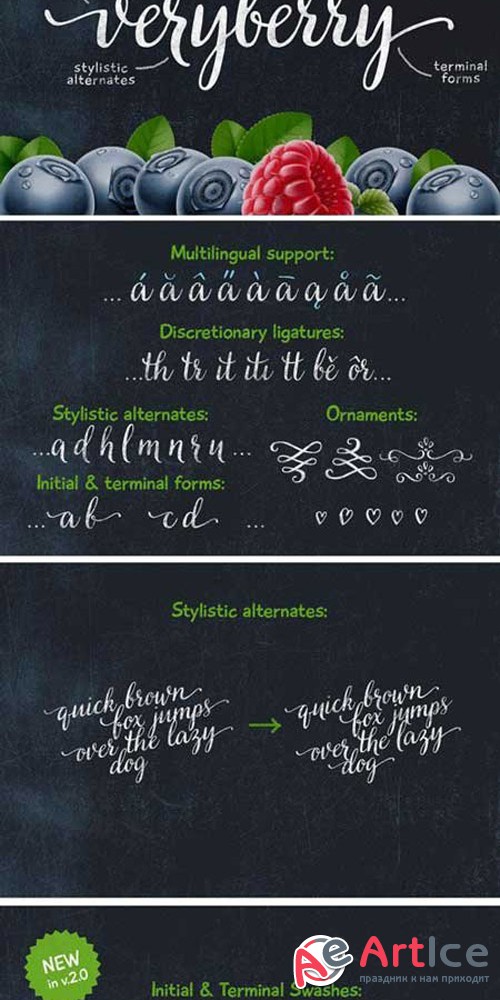 veryberry
stylistic
alternates
terminal
forms
Multilingual support:
... á ă â a̋ à ā ą å ã ...
Discretionary ligatures:
...th tr it iti tt bě ôr...
Stylistic alternates:
...a d h l m n r u ...
Ornaments:
Initial & terminal forms:
...a b c d ...
Stylistic alternates:
quick brown
fox jumps
over the lazy
dog
→
quick brown
fox jumps
over the lazy
dog
NEW
in v.2.0
Initial & Terminal Swashes:
ArtIce
праздник к нам приходит